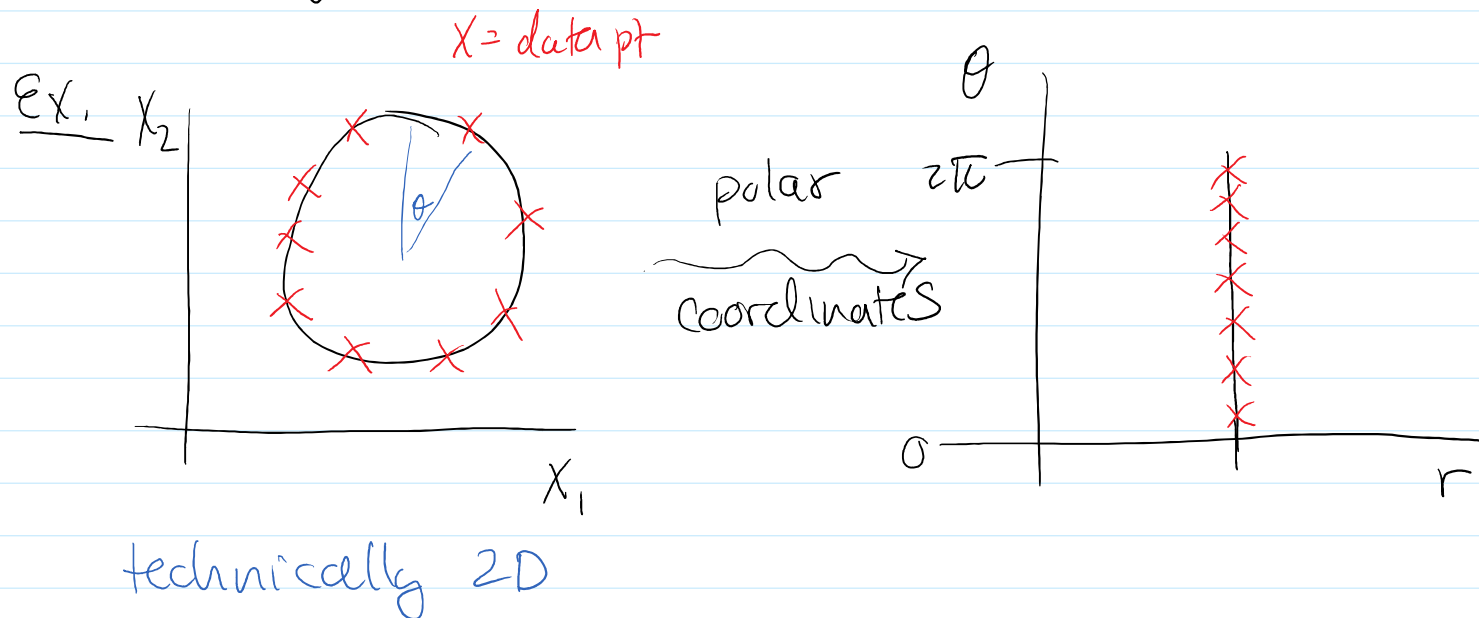 X = data pt
Ex.
X₂
θ
X₁
polar
coordinates
θ
2π
0
r
technically 2D